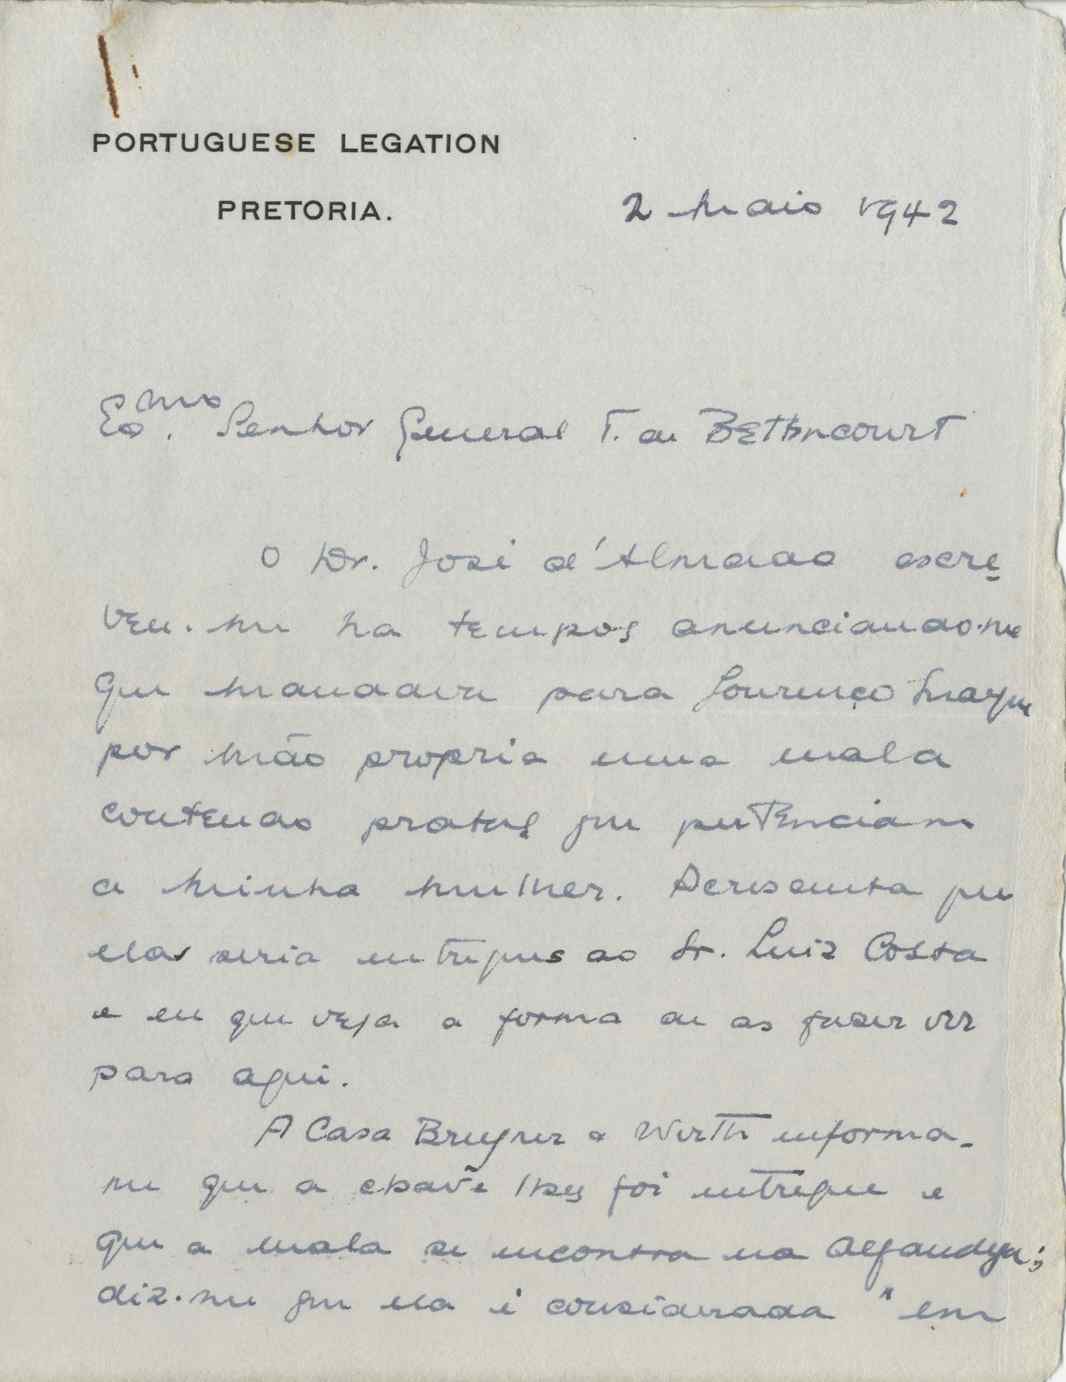 PORTUGUESE LEGATION
PRETORIA.
2 Maio 1942
Exmo. Senhor General T. de Bettencourt
O Dr. José d'Almada escre
veu-me ha tempos anunciando-me
que mandava para Lourenço Marques
por mão propria uma mala
contendo pratas que pertenciam
a minha mulher. Acrescenta que
elas seria entregues ao Sr. Luiz Costa
e eu que veja a forma de as fazer vir
para aqui.
A Casa & Wirth informa-
me que a chave lhes foi entregue e
que a mala se encontra na Alfandega;
diz-me que ela é considerada "em